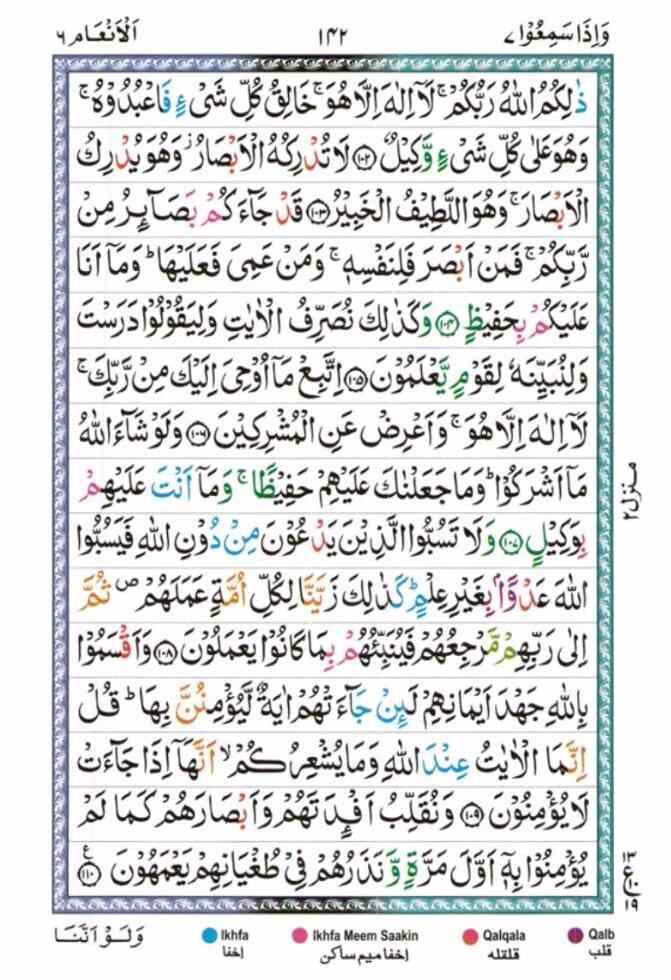 وَاِذَا سَمِعُوْا ٧ ١٤٢ اَلْاَنْعَام ٦
ذٰلِكُمُ اللّٰهُ رَبُّكُمْ ۚ لَاۤ اِلٰهَ اِلَّا هُوَ ۚ خَالِقُ كُلِّ شَیْءٍ فَاعْبُدُوْهُ ۚ
وَهُوَ عَلٰی كُلِّ شَیْءٍ وَّكِیْلٌ ﴿١٠٢﴾ لَا تُدْرِكُهُ الْاَبْصَارُ ۫ وَهُوَ یُدْرِكُ
الْاَبْصَارَ ۚ وَهُوَ اللَّطِیْفُ الْخَبِیْرُ ﴿١٠٣﴾ قَدْ جَآءَكُمْ بَصَآئِرُ مِنْ
رَّبِّكُمْ ۚ فَمَنْ اَبْصَرَ فَلِنَفْسِهٖ ۚ وَمَنْ عَمِیَ فَعَلَیْهَا ؕ وَمَاۤ اَنَا
عَلَیْكُمْ بِحَفِیْظٍ ﴿١٠٤﴾ وَكَذٰلِكَ نُصَرِّفُ الْاٰیٰتِ وَلِیَقُوْلُوْا دَرَسْتَ
وَلِنُبَیِّنَهٗ لِقَوْمٍ یَّعْلَمُوْنَ ﴿١٠٥﴾ اِتَّبِعْ مَاۤ اُوْحِیَ اِلَیْكَ مِنْ رَّبِّكَ ۚ
لَاۤ اِلٰهَ اِلَّا هُوَ ۚ وَاَعْرِضْ عَنِ الْمُشْرِكِیْنَ ﴿١٠٦﴾ وَلَوْ شَآءَ اللّٰهُ
مَاۤ اَشْرَكُوْا ؕ وَمَا جَعَلْنٰكَ عَلَیْهِمْ حَفِیْظًا ۚ وَمَاۤ اَنْتَ عَلَیْهِمْ
بِوَكِیْلٍ ﴿١٠٧﴾ وَلَا تَسُبُّوا الَّذِیْنَ یَدْعُوْنَ مِنْ دُوْنِ اللّٰهِ فَیَسُبُّوا
اللّٰهَ عَدْوًۢا بِغَیْرِ عِلْمٍ ؕ كَذٰلِكَ زَیَّنَّا لِكُلِّ اُمَّةٍ عَمَلَهُمْ ۪ ثُمَّ
اِلٰی رَبِّهِمْ مَّرْجِعُهُمْ فَیُنَبِّئُهُمْ بِمَا كَانُوْا یَعْمَلُوْنَ ﴿١٠٨﴾ وَاَقْسَمُوْا
بِاللّٰهِ جَهْدَ اَیْمَانِهِمْ لَئِنْ جَآءَتْهُمْ اٰیَةٌ لَّیُؤْمِنُنَّ بِهَا ؕ قُلْ
اِنَّمَا الْاٰیٰتُ عِنْدَ اللّٰهِ وَمَا یُشْعِرُكُمْ ۙ اَنَّهَاۤ اِذَا جَآءَتْ
لَا یُؤْمِنُوْنَ ﴿١٠٩﴾ وَنُقَلِّبُ اَفْـِٕدَتَهُمْ وَاَبْصَارَهُمْ كَمَا لَمْ
یُؤْمِنُوْا بِهٖۤ اَوَّلَ مَرَّةٍ وَّنَذَرُهُمْ فِیْ طُغْیَانِهِمْ یَعْمَهُوْنَ ﴿١١٠﴾ ع
منزل ٢
١٣
ع ١٠
١٩
وَلَوْ اَنَّنَا
Ikhfa اخفا
Ikhfa Meem Saakin إخفا ميم ساكن
Qalqala قلقله
Qalb قلب